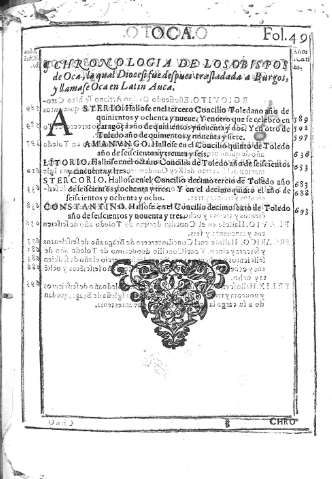 OCA. Fol.49
CHRONOLOGIA DE LOS OBISPOS
de Oca, la qual Diocesi fue despues trasladada a Burgos,
y llamase Oca en Latin Auca.
ASTERIO. Hallose en el tercero Concilio Toledano año de
quinientos y ochenta y nueue. Y en otro que se celebrò en 589
Çaragoça año de quinientos y nouenta y dos. Y en otro de 592
Toledo año de quinientos y nouenta y siete. 597
AMANVNGO. Hallose en el Concilio quinto de Toledo
año de seiscientos y treinta y seis. 636
LITORIO. Hallose en el octauo Concilio de Toledo año de seiscientos
y cincuenta y tres. 653
STERCORIO. Hallose en el Concilio decimo tercio de Toledo año 683
de seiscientos y ochenta y tres. Y en el decimo quinto el año de 688
seiscientos y ochenta y ocho.
CONSTANTINO. Hallose en el Concilio decimo sexto de Toledo 693
año de seiscientos y nouenta y tres.
CHRO